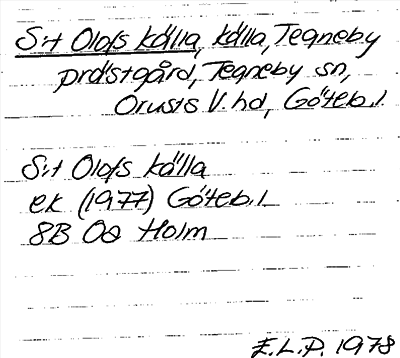 S:t Olofs källa, källa, Tegneby
prästgård, Tegneby sn,
Orusts V. hd, Göteb. l.
S:t Olofs källa
ek (1977) Göteb. l.
8B 0a Holm
E.L.P. 1978